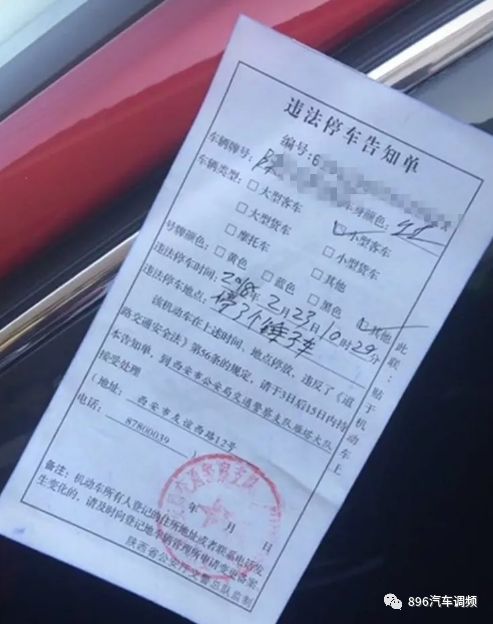 违法停车告知单
编号:6
车辆牌号: 陕 车身颜色: 红
车辆类型: □大型客车 □小型客车
□大型货车 □小型货车
□摩托车 □其他
号牌颜色: □黄色 □蓝色 □黑色 □其他
违法停车时间: 2018年2月23日10时29分
违法停车地点: 停了个锤子车
该机动车在上述时间、地点停放，违反了《道
路交通安全法》第56条的规定，请于3日后15日内持
本告知单，到 西安市公安局交通警察支队雁塔大队
接受处理
(地址: 西安市友谊西路12号
电话: 87800039 )
年 月 日
备注: 机动车所有人登记的住所地址或者联系电话发
生变化的，请及时向登记地车辆管理所申请变更备案
陕西省公安厅交警总队监制
此联：贴于机动车上
896汽车调频